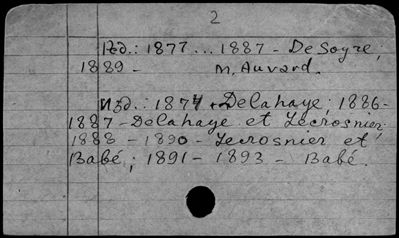 2
Изд.: 1877 ... 1887 - De Soyre;
1889 - M. Auvard.
Изд.: 1877 - Delahaye; 1886-
1887 - Delahaye et Lecrosnier
1888 - 1890 - Lecrosnier et
Babé; 1891 - 1893 - Babé.